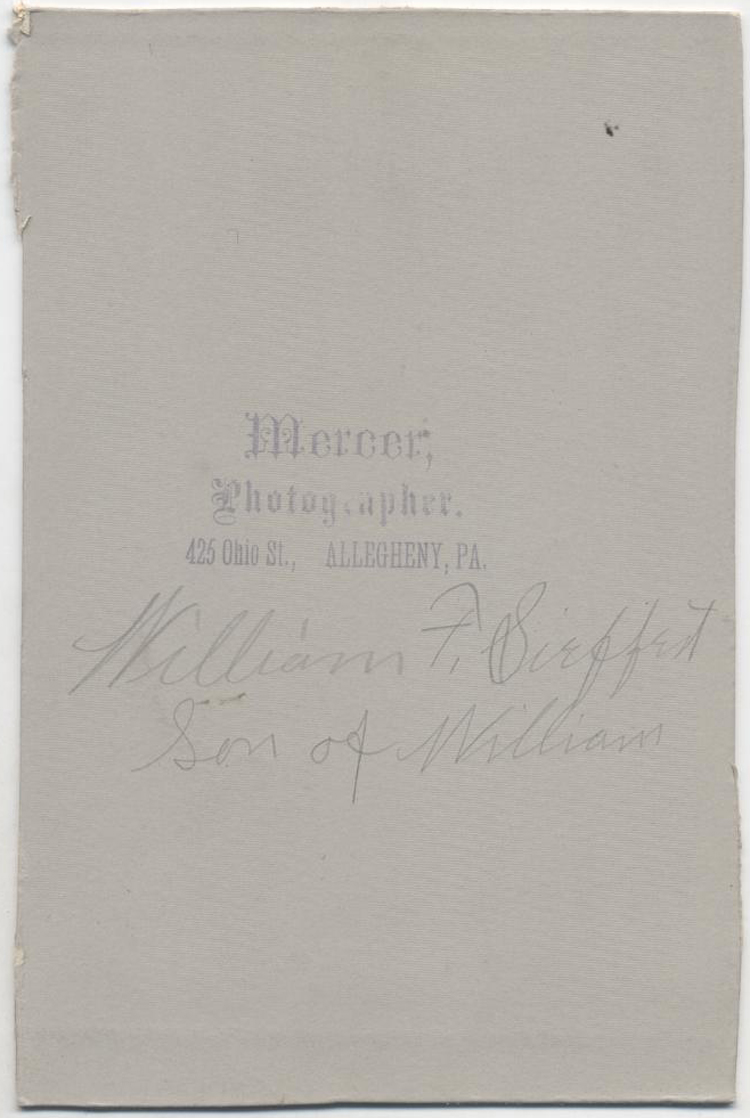 Mercer,
Photographer.
425 Ohio St., ALLEGHENY, PA.
William F. Sieffert
Son of William